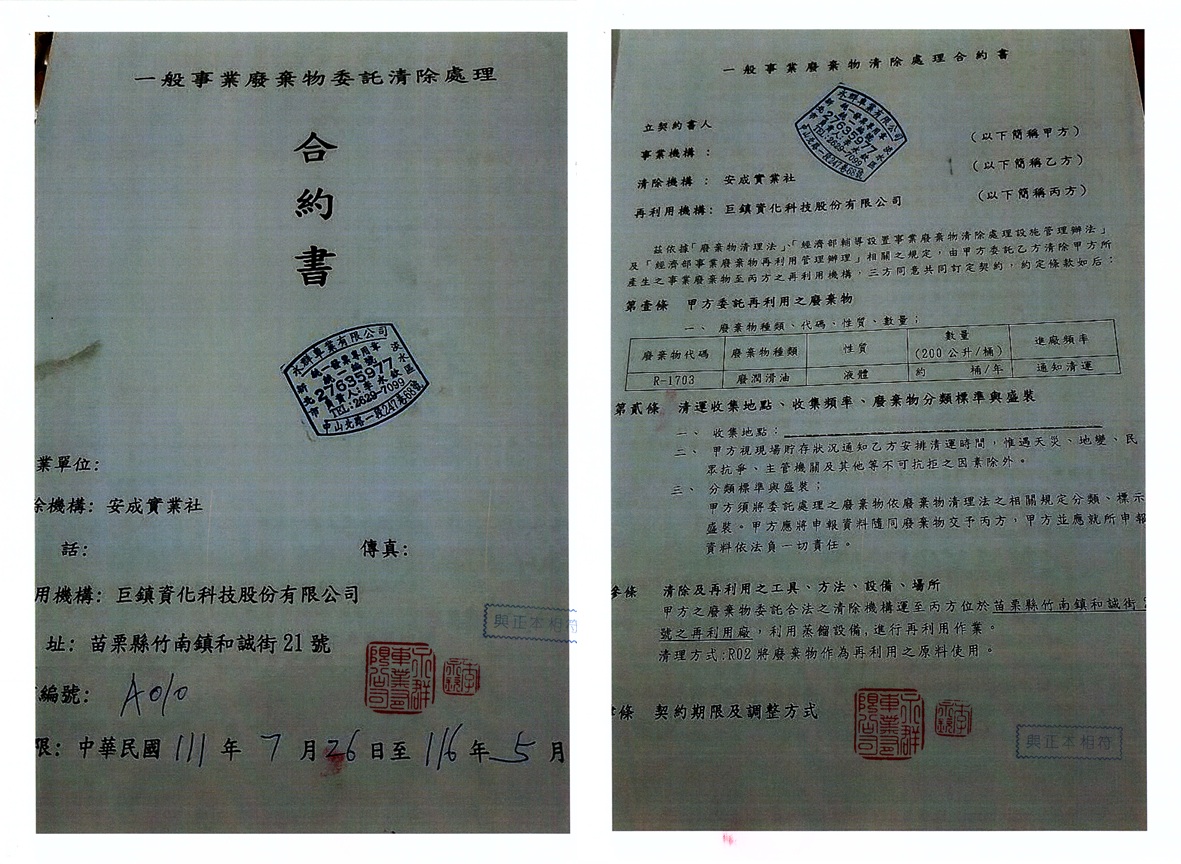 一般事業廢棄物委託清除處理
合
約
書
永群車業有限公司
統一發票專用章
統一編號
27635977
TEL:2629-7099
中山北路一段247巷68號
業單位:
除機構: 安成實業社
話: 傳真:
用機構: 巨鎮資化科技股份有限公司
址: 苗栗縣竹南鎮和誠街21號
與正本相符
編號: A010
限: 中華民國 111 年 7 月 26 日至 116 年 5 月
一般事業廢棄物清除處理合約書
永群車業有限公司
統一發票專用章
統一編號
27635977
TEL:2629-7099
中山北路一段247巷68號
立契約書人
(以下簡稱甲方)
事業機構:
(以下簡稱乙方)
清除機構: 安成實業社
(以下簡稱丙方)
再利用機構: 巨鎮資化科技股份有限公司
茲依據「廢棄物清理法」、「經濟部輔導設置事業廢棄物清除處理設施管理辦法」
及「經濟部事業廢棄物再利用管理辦理」相關之規定，由甲方委託乙方清除甲方所
產生之事業廢棄物至丙方之再利用機構，三方同意共同訂定契約，約定條款如后:
第壹條 甲方委託再利用之廢棄物
一、 廢棄物種類、代碼、性質、數量;
廢棄物代碼 廢棄物種類 性質 數量 (200公升/桶) 進廠頻率
R-1703 廢潤滑油 液體 約 桶/年 通知清運
第貳條 清運收集地點、收集頻率、廢棄物分類標準與盛裝
一、 收集地點:
二、 甲方視現場貯存狀況通知乙方安排清運時間，惟遇天災、地變、民
眾抗爭、主管機關及其他等不可抗拒之因素除外。
三、 分類標準與盛裝;
甲方須將委託處理之廢棄物依廢棄物清理法之相關規定分類、標示
盛裝。甲方應將申報資料隨同廢棄物交予丙方，甲方並應就所申報
資料依法負一切責任。
參條 清除及再利用之工具、方法、設備、場所
甲方之廢棄物委託合法之清除機構運至丙方位於苗栗縣竹南鎮和誠街
號之再利用廠，利用蒸餾設備,進行再利用作業。
清理方式:R02將廢棄物作為再利用之原料使用。
條 契約期限及調整方式
與正本相符